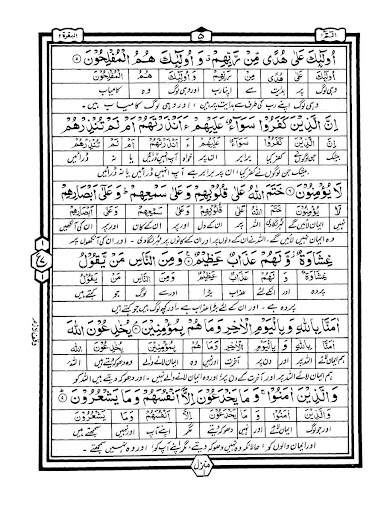 الٓمّٓ ١ ۵ البقرة ٢
اُولٰٓئِكَ عَلٰى هُدًى مِّنْ رَّبِّهِمْ وَ اُولٰٓئِكَ هُمُ الْمُفْلِحُوْنَ ۵
اُولٰٓئِكَ عَلٰى هُدًى مِّنْ رَّبِّهِمْ وَ اُولٰٓئِكَ هُمُ الْمُفْلِحُوْنَ
وہی لوگ پر ہدایت سے اپنا رب اور وہی لوگ وہ کامیاب
وہی لوگ اپنے رب کی طرف سے ہدایت پر ہیں اور وہی لوگ کامیاب ہیں۔
اِنَّ الَّذِيْنَ كَفَرُوْا سَوَآءٌ عَلَيْهِمْ ءَاَنْذَرْتَهُمْ اَمْ لَمْ تُنْذِرْهُمْ
اِنَّ الَّذِيْنَ كَفَرُوْا سَوَآءٌ عَلَيْهِمْ ءَاَنْذَرْتَهُمْ اَمْ لَمْ تُنْذِرْهُمْ
بیشک جن لوگوں نے کفر کیا برابر ان پر خواہ آپ انہیں ڈرائیں یا نہ ڈرائیں
بیشک جن لوگوں نے کفر کیا، ان پر برابر ہے آپ انہیں ڈرائیں یا نہ ڈرائیں
لَا يُؤْمِنُوْنَ ۶ خَتَمَ اللّٰهُ عَلٰى قُلُوْبِهِمْ وَعَلٰى سَمْعِهِمْ وَعَلٰٓى اَبْصَارِهِمْ
لَا يُؤْمِنُوْنَ خَتَمَ اللّٰهُ عَلٰى قُلُوْبِهِمْ وَعَلٰى سَمْعِهِمْ وَعَلٰٓى اَبْصَارِهِمْ
نہیں ایمان لائیں گے مہر لگا دی اللہ پر ان کے دل اور پر ان کے کان اور پر ان کی آنکھیں
وہ ایمان نہیں لائیں گے، اللہ نے ان کے دلوں پر اور ان کے کانوں پر مہر لگا دی، اور ان کی آنکھوں پر
غِشَاوَةٌ وَّ لَهُمْ عَذَابٌ عَظِيْمٌ ۷ وَمِنَ النَّاسِ مَنْ يَّقُوْلُ
غِشَاوَةٌ وَّ لَهُمْ عَذَابٌ عَظِيْمٌ وَ مِنَ النَّاسِ مَنْ يَّقُوْلُ
پردہ اور انکے لئے عذاب بڑا اور سے لوگ جو کہتے ہیں
پردہ ہے، اور ان کے لئے بڑا عذاب ہے، اور کچھ لوگ ہیں جو کہتے ہیں
اٰمَنَّا بِاللّٰهِ وَبِالْيَوْمِ الْاٰخِرِ وَمَا هُمْ بِمُؤْمِنِيْنَ ۸ يُخٰدِعُوْنَ اللّٰهَ
اٰمَنَّا بِاللّٰهِ وَبِالْيَوْمِ الْاٰخِرِ وَمَا هُمْ بِمُؤْمِنِيْنَ يُخٰدِعُوْنَ اللّٰهَ
ہم ایمان لائے اللہ پر اور دن پر آخرت اور نہیں وہ ایمان لانے والے وہ دھوکہ دیتے ہیں اللہ
ہم ایمان لائے اللہ پر اور آخرت کے دن پر اور وہ ایمان لانے والے نہیں۔ وہ دھوکہ دیتے ہیں اللہ کو
وَالَّذِيْنَ اٰمَنُوْا وَمَا يَخْدَعُوْنَ اِلَّآ اَنْفُسَهُمْ وَمَا يَشْعُرُوْنَ ۹
وَالَّذِيْنَ اٰمَنُوْا وَمَا يَخْدَعُوْنَ اِلَّآ اَنْفُسَهُمْ وَمَا يَشْعُرُوْنَ
اور جو لوگ ایمان لائے اور نہیں دھوکہ دیتے مگر اپنے آپ اور نہیں سمجھتے ہیں
اور ایمان والوں کو، حالانکہ وہ نہیں دھوکہ دیتے مگر اپنے آپ کو اور وہ نہیں سمجھتے۔
منزل ١